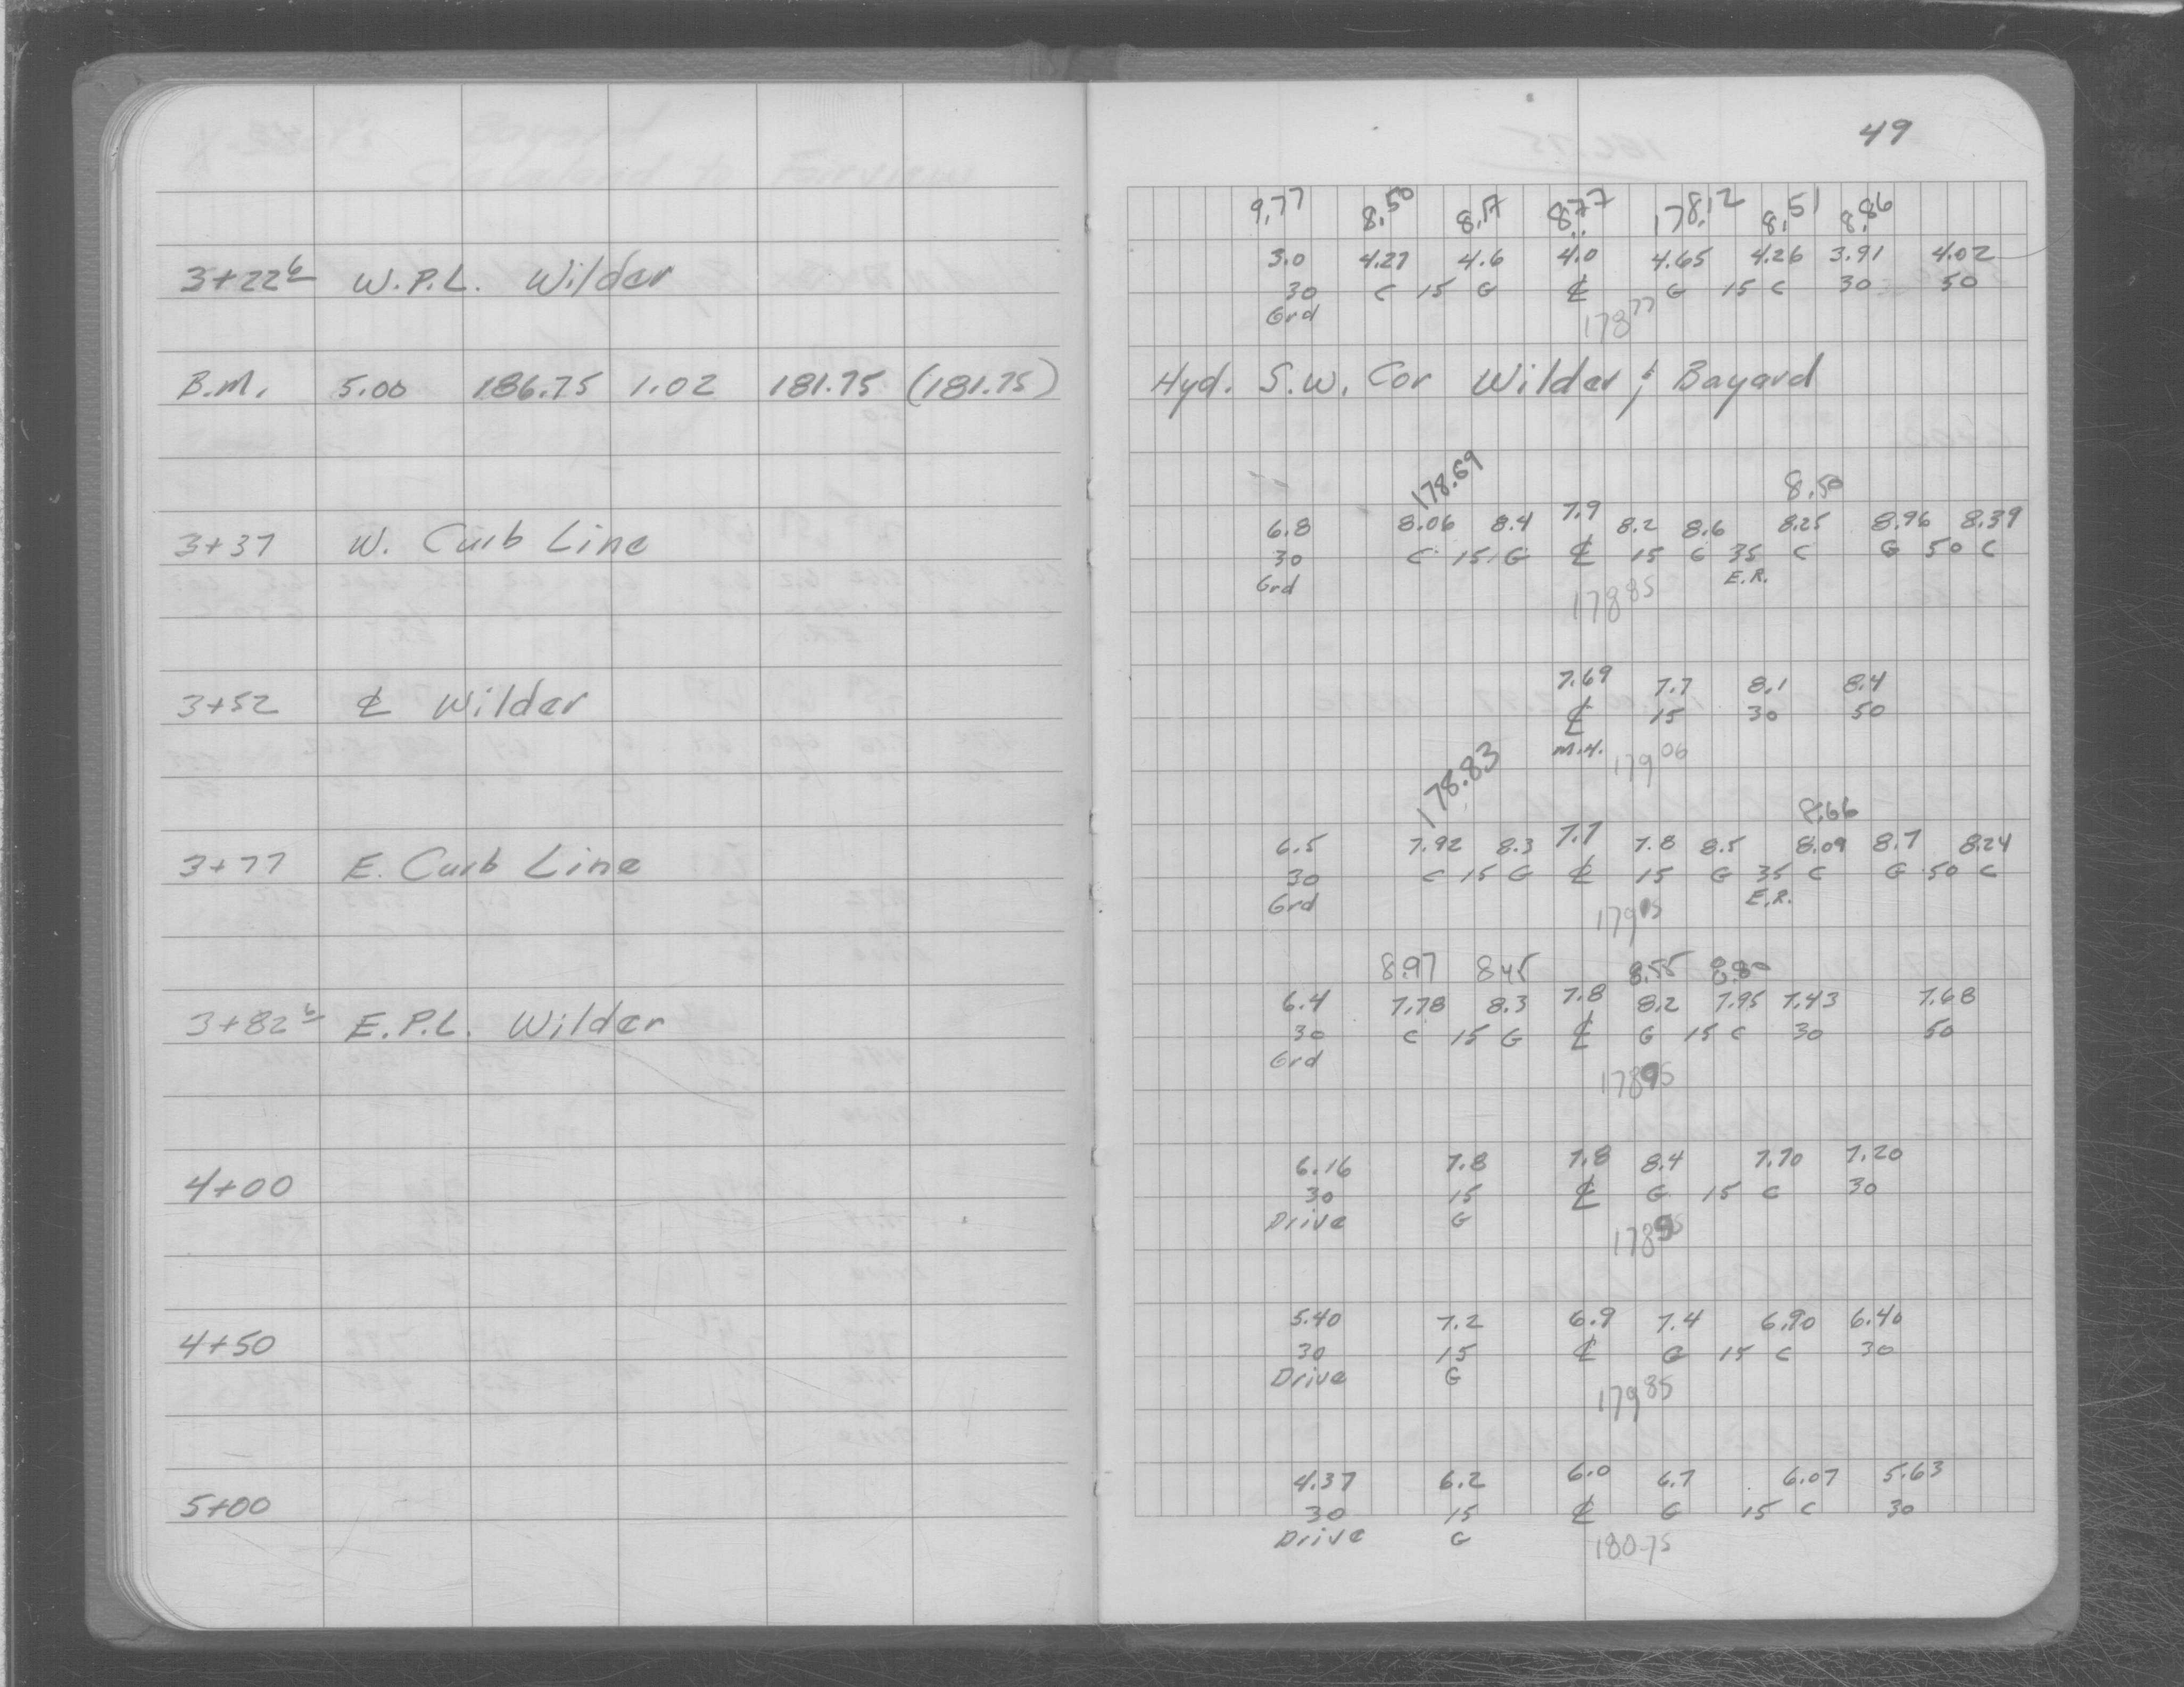 49
9.77 8.50 8.17 8.77 178.12 8.51 8.86
3+22⁶ W.P.L. Wilder 3.0 4.27 4.6 4.0 4.65 4.26 3.91 4.02
30 C 15 G ℄ G 15 C 30 50
Grd 178⁷⁷
B.M. 5.00 186.75 1.02 181.75 (181.75) Hyd. S.W. Cor Wilder & Bayard
178.69 8.50
3+37 W. Curb Line 6.8 8.06 8.4 7.9 8.2 8.6 8.25 8.96 8.39
30 C 15 G ℄ 15 G 35 C G 50 C
Grd 178⁸⁵ E.R.
3+52 ℄ Wilder 7.69 7.7 8.1 8.4
℄ 15 30 50
M.H. 179⁰⁶
178.83 8.66
3+77 E. Curb Line 6.5 7.92 8.3 7.7 7.8 8.5 8.09 8.7 8.24
30 C 15 G ℄ 15 G 35 C G 50 C
Grd 179⁰⁵ E.R.
8.97 8.45 8.55 8.80
3+82⁶ E.P.L. Wilder 6.4 7.78 8.3 7.8 8.2 7.95 7.43 7.68
30 C 15 G ℄ G 15 C 30 50
Grd 178⁹⁵
4+00 6.16 7.8 7.8 8.4 7.70 7.20
30 15 ℄ G 15 C 30
Drive G 178⁹⁵
4+50 5.40 7.2 6.9 7.4 6.90 6.40
30 15 ℄ G 15 C 30
Drive G 179⁸⁵
5+00 4.37 6.2 6.0 6.7 6.07 5.63
30 15 ℄ G 15 C 30
Drive G 180.75